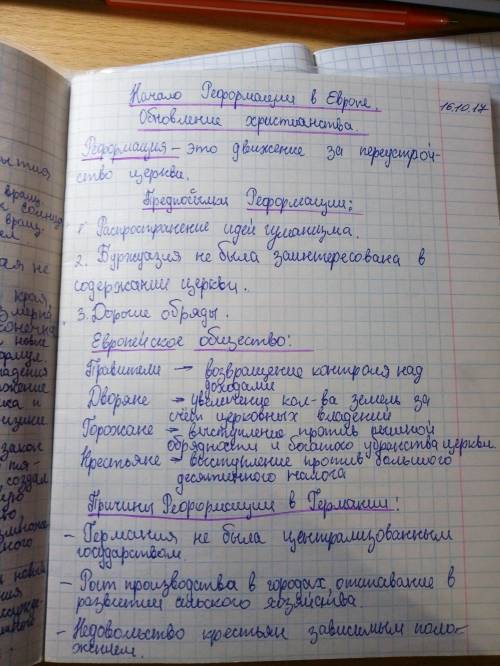 16.10.17
Начало Реформации в Европе.
Обновление христианства.
Реформация – это движение за переустрой-
ство церкви.
Предпосылки Реформации:
1. Распространение идей гуманизма.
2. Буржуазия не была заинтересована в
содержание церкви.
3. Дорогие обряды.
Европейское общество:
Правители → возвращение контроля над
доходами
Дворяне → увеличение кол-ва земель за
счёт церковных владений
Горожане → выступление против пышной
обрядности и богатого убранства церкви.
Крестьяне → выступление против большого
десятинного налога
Причины Реформации в Германии:
– Германия не была централизованным
государством.
– Рост производства в городах, отставание в
развитии сельского хозяйства.
– Недовольство крестьян зависимым поло-
жением.